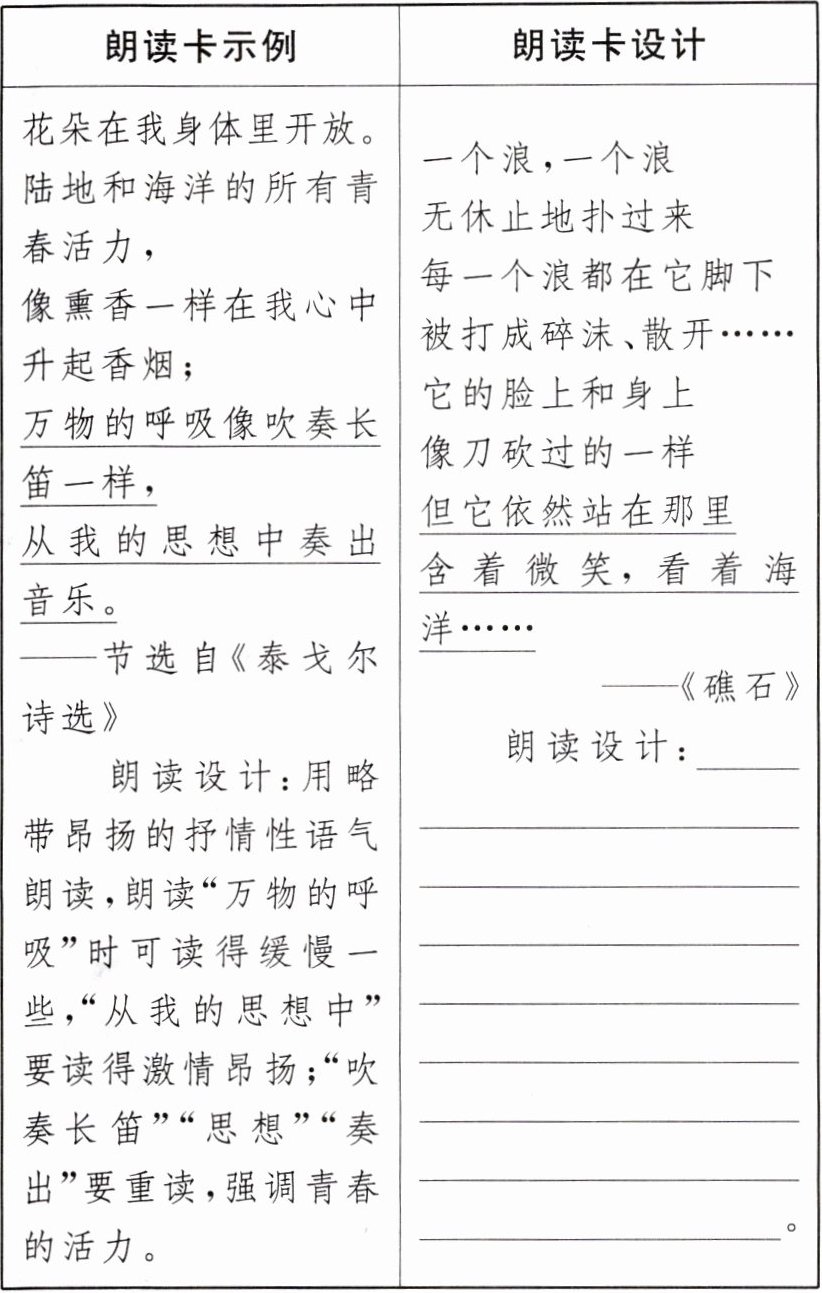 朗读卡示例
花朵在我身体里开放。
陆地和海洋的所有青
春活力，
像熏香一样在我心中
升起香烟；
万物的呼吸像吹奏长
笛一样，
从我的思想中奏出
音乐。
——节选自《泰戈尔
诗选》
朗读设计：用略
带昂扬的抒情性语气
朗读，朗读“万物的呼
吸”时可读得缓慢一
些，“从我的思想中”
要读得激情昂扬；“吹
奏长笛”“思想”“奏
出”要重读，强调青春
的活力。
朗读卡设计
一个浪，一个浪
无休止地扑过来
每一个浪都在它脚下
被打成碎沫、散开……
它的脸上和身上
像刀砍过的一样
但它依然站在那里
含着微笑，看着海
洋……
——《礁石》
朗读设计：
。